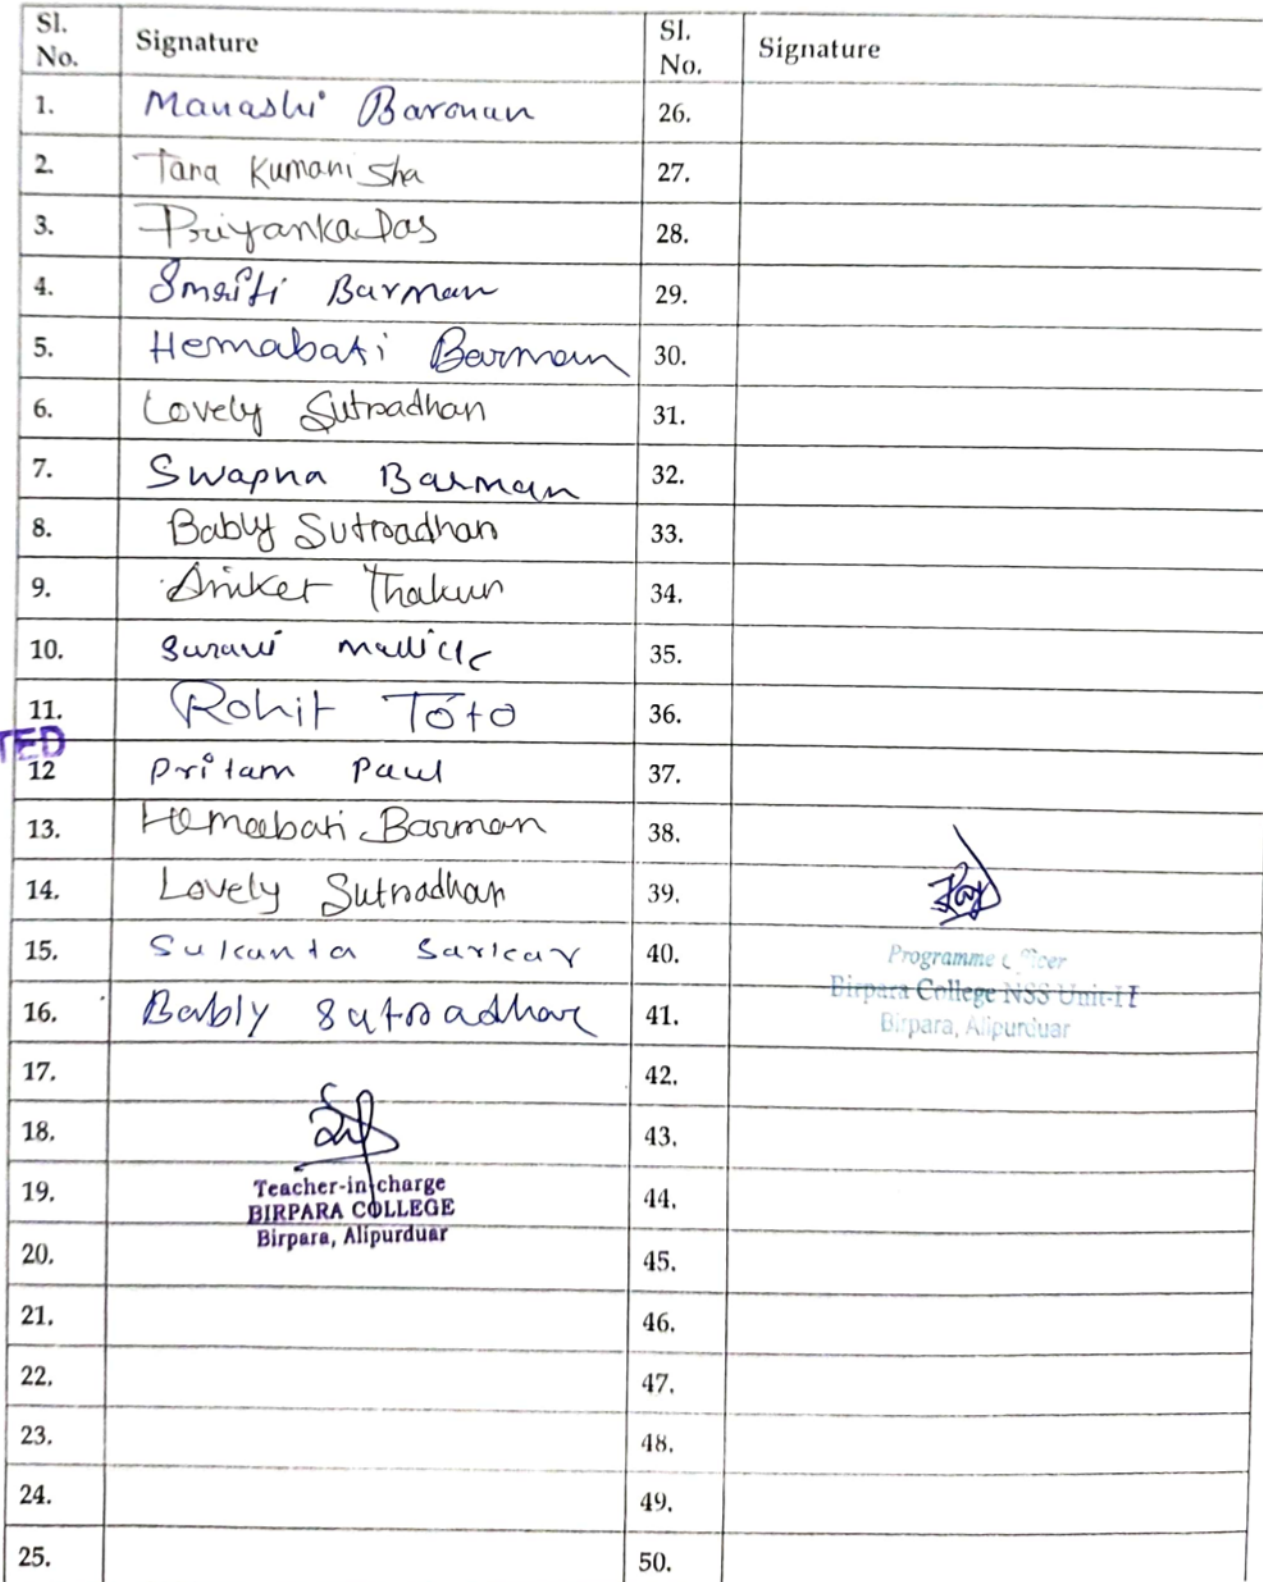 Sl. No. Signature Sl. No. Signature
1. Manashi Barman 26.
2. Tara Kumari Sha 27.
3. Priyanka Das 28.
4. Smriti Barman 29.
5. Hemabati Barman 30.
6. Lovely Sutradhar 31.
7. Swapna Barman 32.
8. Bably Sutradhar 33.
9. Aniket Thakur 34.
10. Suravi Mallick 35.
11. Rohit Toto 36.
TED
12 Pritam Paul 37.
13. Hemabati Barman 38.
14. Lovely Sutradhar 39.
15. Sukanta Sarkar 40.
Programme Officer
Birpara College NSS Unit-II
16. Bably Sutradhar 41.
Birpara, Alipurduar
17. 42.
18. 43.
19. Teacher-in-charge 44.
BIRPARA COLLEGE
Birpara, Alipurduar
20. 45.
21. 46.
22. 47.
23. 48.
24. 49.
25. 50.